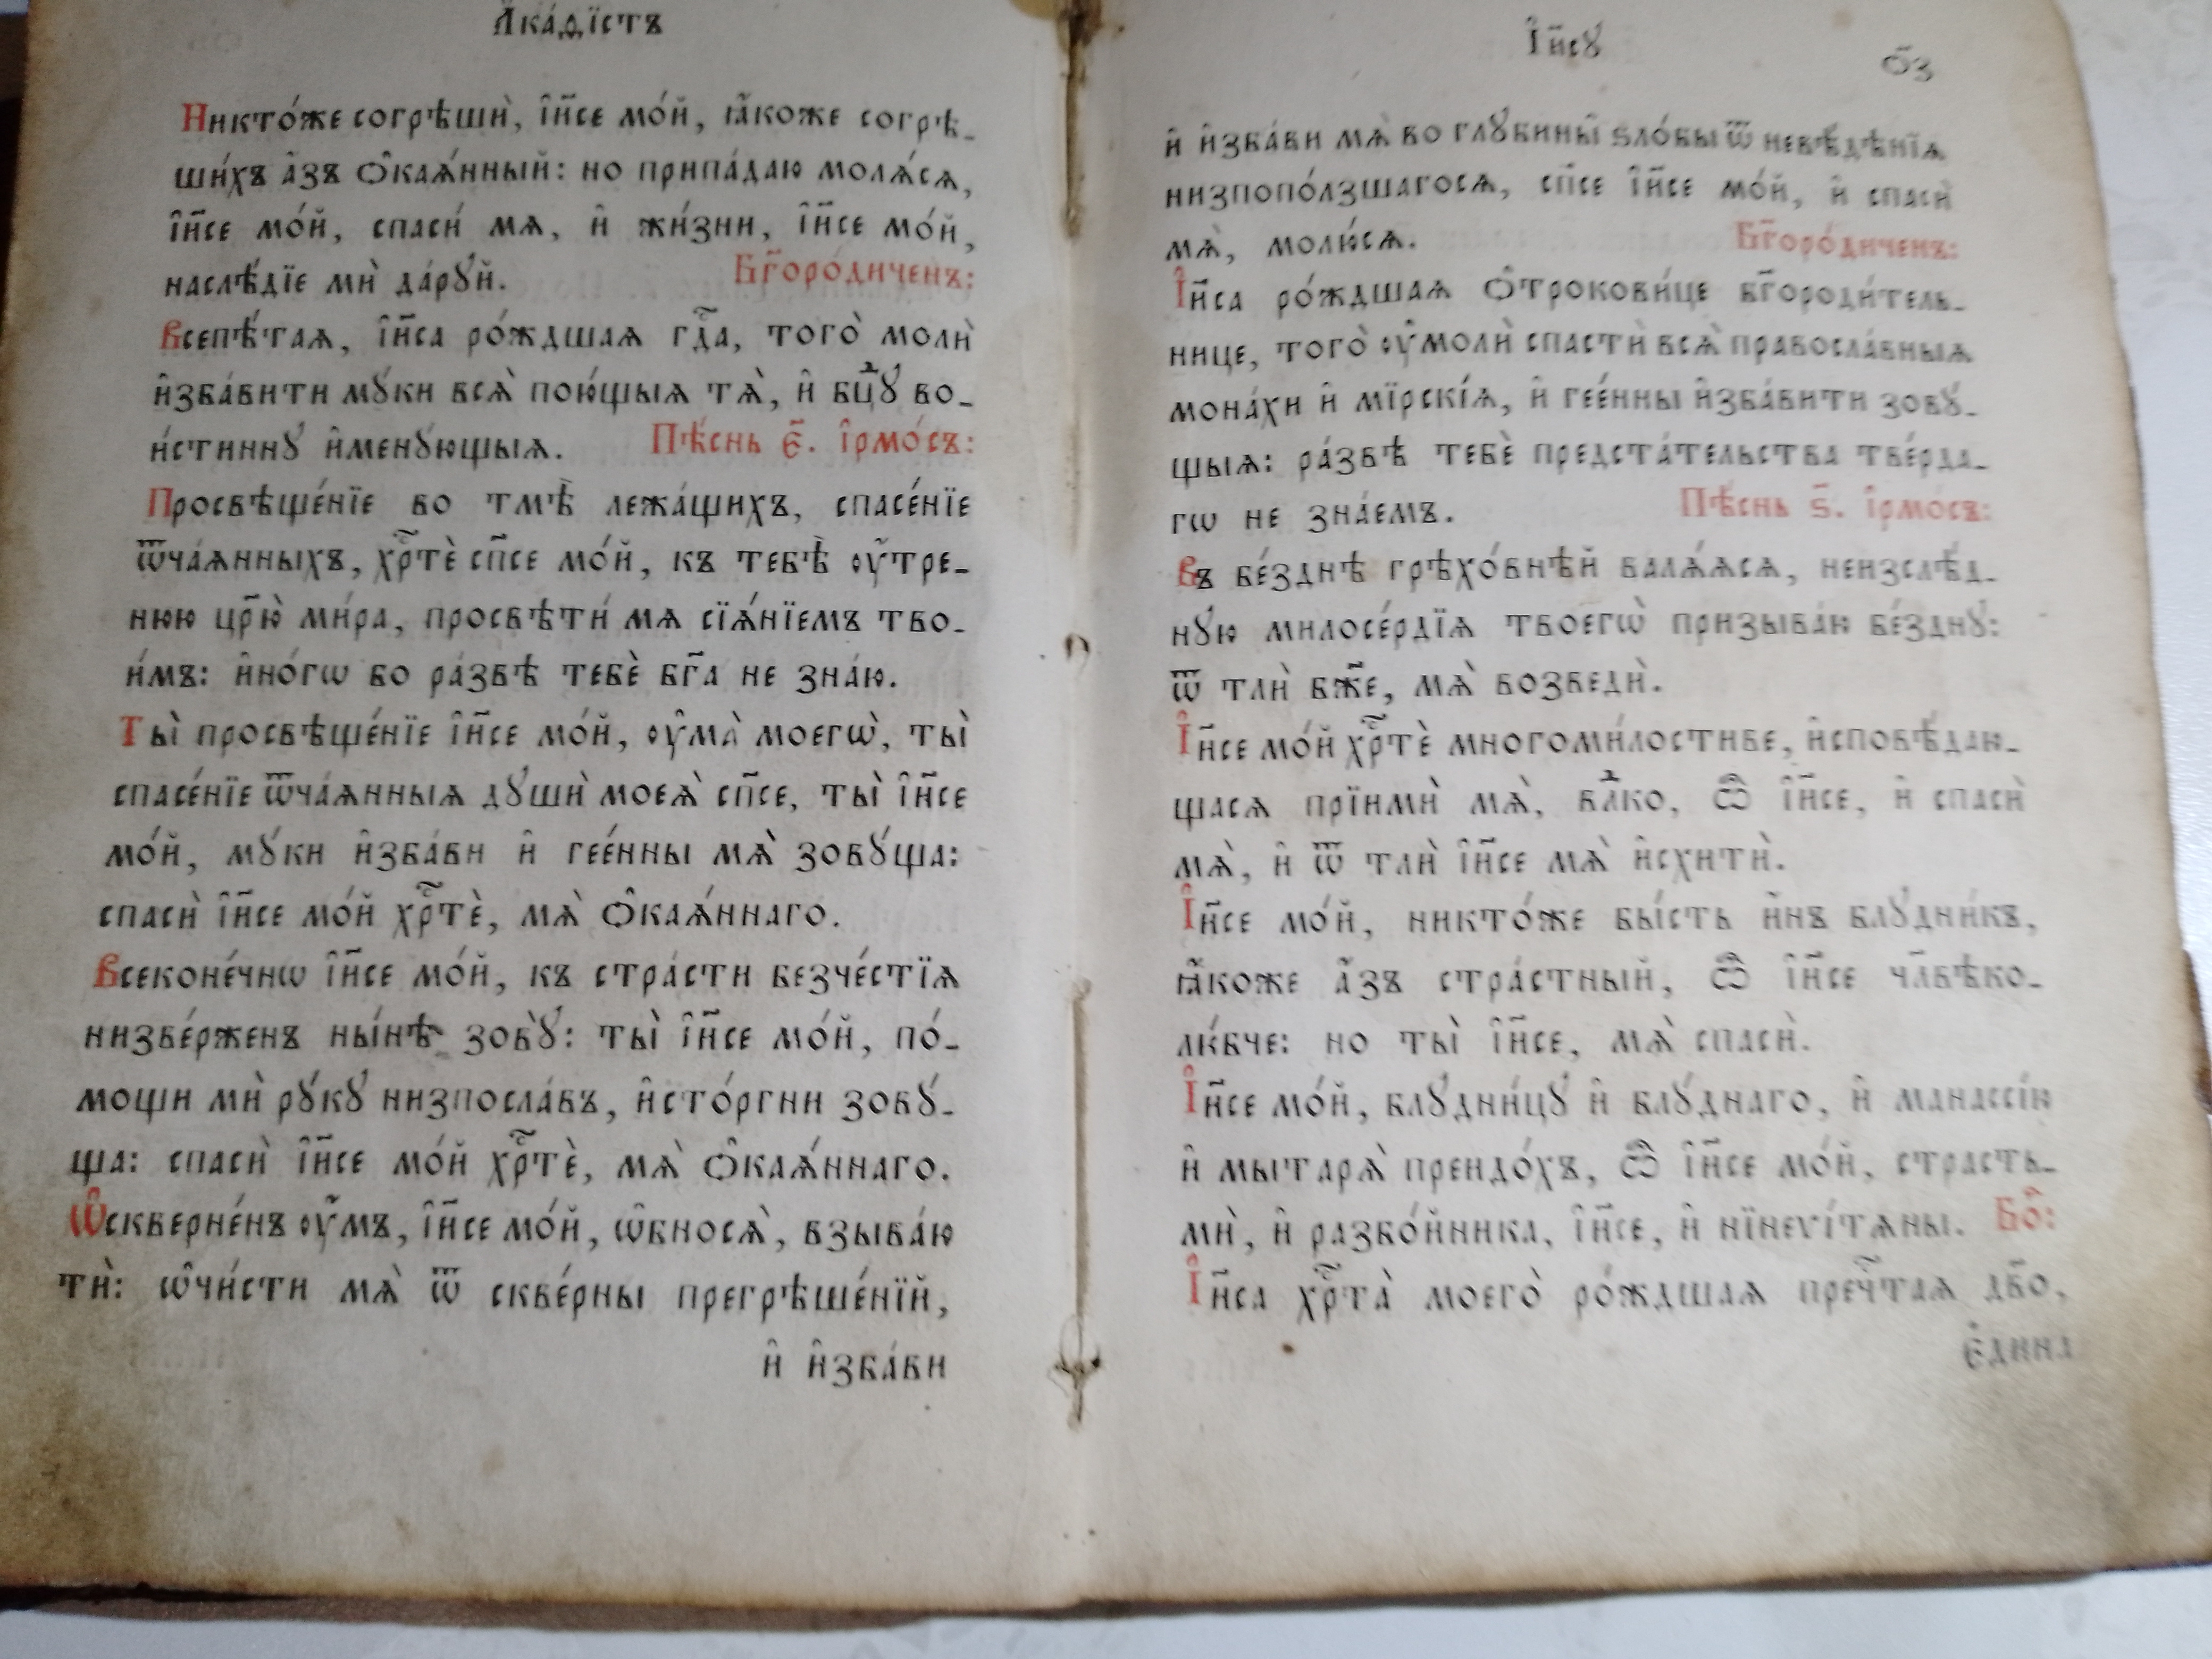 А҆ка́ѳїстъ
Никто́же согрѣшѝ, і҆и҃се мо́й, ꙗ҆́коже согрѣ-
ши́хъ а҆́зъ ѻ҆кая́нный: но припа́даю моля́ся,
і҆и҃се мо́й, спаси́ мѧ, и҆ жи́зни, і҆и҃се мо́й,
наслѣ́дїе мѝ да́рꙋй. Бг҃оро́диченъ:
Всепѣ́тая, і҆и҃са ро́ждшая гдⷭ҇а, того̀ молѝ
и҆зба́вити мꙋки всѧ̀ пою́щыѧ тѧ̀, и҆ бцⷣꙋ во-
и́стиннꙋ и҆менꙋющыѧ. Пѣ́снь є҃. і҆рмо́съ:
Просвѣще́нїе во тмѣ̀ лежа́щихъ, спасе́нїе
ѿча́ѧнныхъ, хрⷭ҇тѐ сп҃се мо́й, къ тебѣ̀ ᲂу҆́тре-
нюю цр҃ю̀ ми́ра, просвѣти́ мѧ сїѧ́нїемъ тво-
и́мъ: и҆но́гѡ бо ра́звѣ тебѐ бг҃а не зна́ю.
Ты̀ просвѣще́нїе і҆и҃се мо́й, ᲂу҆ма̀ моегѡ̀, ты̀
спасе́нїе ѿча́ѧнныѧ дꙋшѝ моеѧ̀ сп҃се, ты̀ і҆и҃се
мо́й, мꙋки и҆зба́ви и҆ гее́нны мѧ̀ зовꙋ́ща:
спасѝ і҆и҃се мо́й хрⷭ҇тѐ, мѧ̀ ѻ҆каѧ́ннаго.
Всеконе́чнѡ і҆и҃се мо́й, къ стра́сти безче́стїѧ
низве́рженъ ны́нѣ зовꙋ̀: ты̀ і҆и҃се мо́й, по́-
мощи мѝ рꙋ́кꙋ низпосла́въ, и҆сто́ргни зовꙋ́-
ща: спасѝ і҆и҃се мо́й хрⷭ҇тѐ, мѧ̀ ѻ҆каѧ́ннаго.
Ѡ҆скверне́нъ ᲂу҆́мъ, і҆и҃се мо́й, ѡ҆бносѧ̀, взыва́ю
тѝ: ѡ҆чи́сти мѧ̀ ѿ скве́рны прегрѣше́нїй,
и҆ и҆зба́ви
І҆и҃сꙋ
ѻ҃з
и҆ и҆зба́ви мѧ̀ во глꙋбины̀ ѕло́бы ѿ невѣ́дѣнїѧ
низпопо́лзшагосѧ, сп҃се і҆и҃се мо́й, и҆ спасѝ
мѧ̀, молю́сѧ. Бг҃оро́диченъ:
І҆и҃са ро́ждшаѧ ѻ҆трокови́це бг҃ороди́тель-
нице, того̀ ᲂу҆молѝ спастѝ всѧ̀ правосла́вныѧ
мона́хи и҆ мїрскі́ѧ, и҆ гее́нны и҆зба́вити зовꙋ-
щыѧ: ра́звѣ тебѐ предста́тельства тве́рда-
гѡ не зна́емъ. Пѣ́снь ѕ҃. і҆рмо́съ:
Въ бе́зднѣ грѣхо́внѣй валѧ́ѧсѧ, неизслѣ́д-
нꙋю милосе́рдїѧ твоегѡ̀ призыва́ю бе́зднꙋ:
ѿ тлѝ бж҃е, мѧ̀ возведѝ.
І҆и҃се мо́й хрⷭ҇тѐ многоми́лостиве, и҆сповѣ́даю-
щасѧ прїимѝ мѧ̀, влⷣко, ѽ і҆и҃се, и҆ спасѝ
мѧ̀, и҆ ѿ тлѝ і҆и҃се мѧ̀ и҆схитѝ.
І҆и҃се мо́й, никто́же бы́сть и҆́нъ блꙋдни́къ,
ꙗ҆́коже а҆́зъ стра́стный, ѽ і҆и҃се чл҃вѣко-
лю́бче: но ты̀ і҆и҃се, мѧ̀ спасѝ.
І҆и҃се мо́й, блꙋдни́цꙋ и҆ блꙋ́днаго, и҆ манассі́ю
и҆ мытарѧ̀ преидо́хъ, ѽ і҆и҃се мо́й, страсть-
мѝ, и҆ разбо́йника, і҆и҃се, и҆ нїнеѵі́тѧны. Бо҃:
І҆и҃са хрⷭ҇та̀ моего̀ ро́ждшаѧ пречⷭ҇таѧ дв҃о,
є҆ди́на